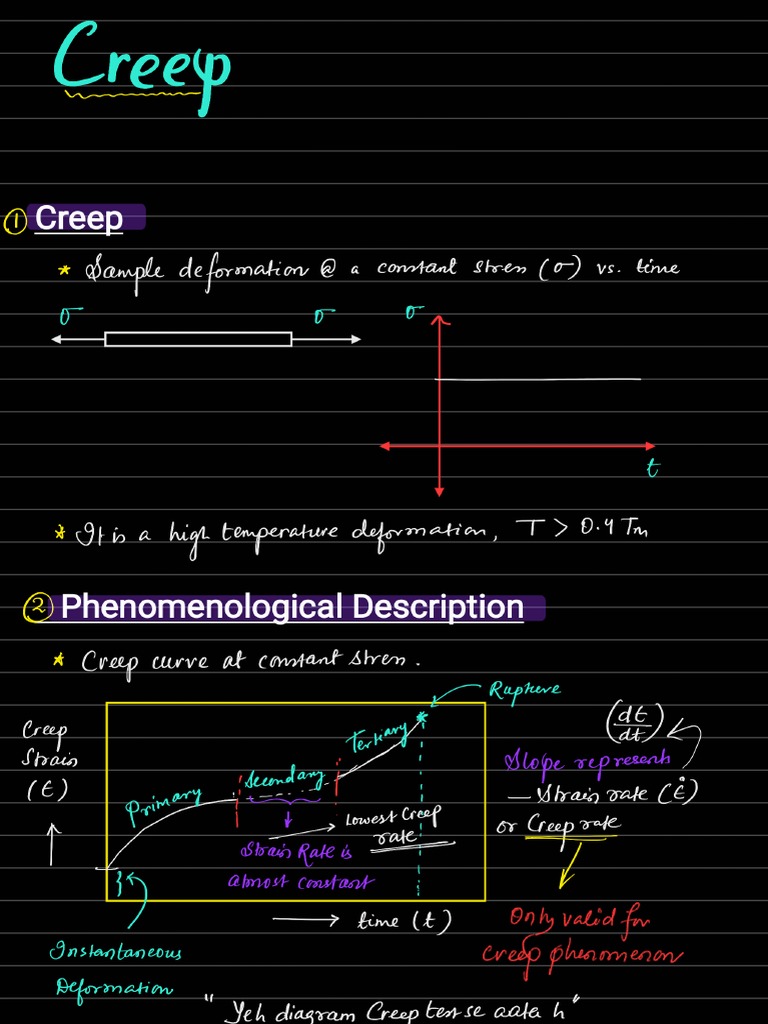 Creep
① Creep
* Sample deformation @ a constant stress (σ) vs. time
σ σ σ
t
* It is a high temperature deformation, T > 0.4 Tm
② Phenomenological Description
* Creep curve at constant stress.
Rupture
Creep
Strain
(ε)
Primary
Secondary
Tertiary
(dε/dt)
Slope represents
— Strain rate (ε̇)
or Creep rate
Lowest Creep
rate
Strain Rate is
almost constant
time (t)
Only valid for
creep phenomenon
Instantaneous
Deformation
"Yeh diagram Creep test se aata h"